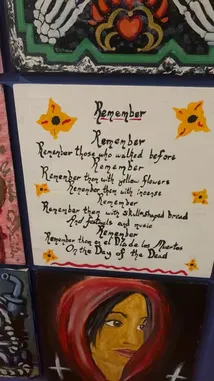 Remember
Remember
Remember those who walked before
Remember
Remember them with yellow flowers
Remember them with incense
Remember
Remember them with skull shaped bread
And festivals and music
Remember
Remember them on el Día de los Muertos
On the Day of the Dead